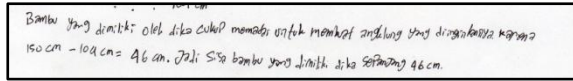 Bambu yang dimiliki oleh dika cukup memadai untuk membuat angklung yang diinginkannya karena
150 cm - 104 cm = 46 cm. Jadi sisa bambu yang dimiliki dika sepanjang 46 cm.